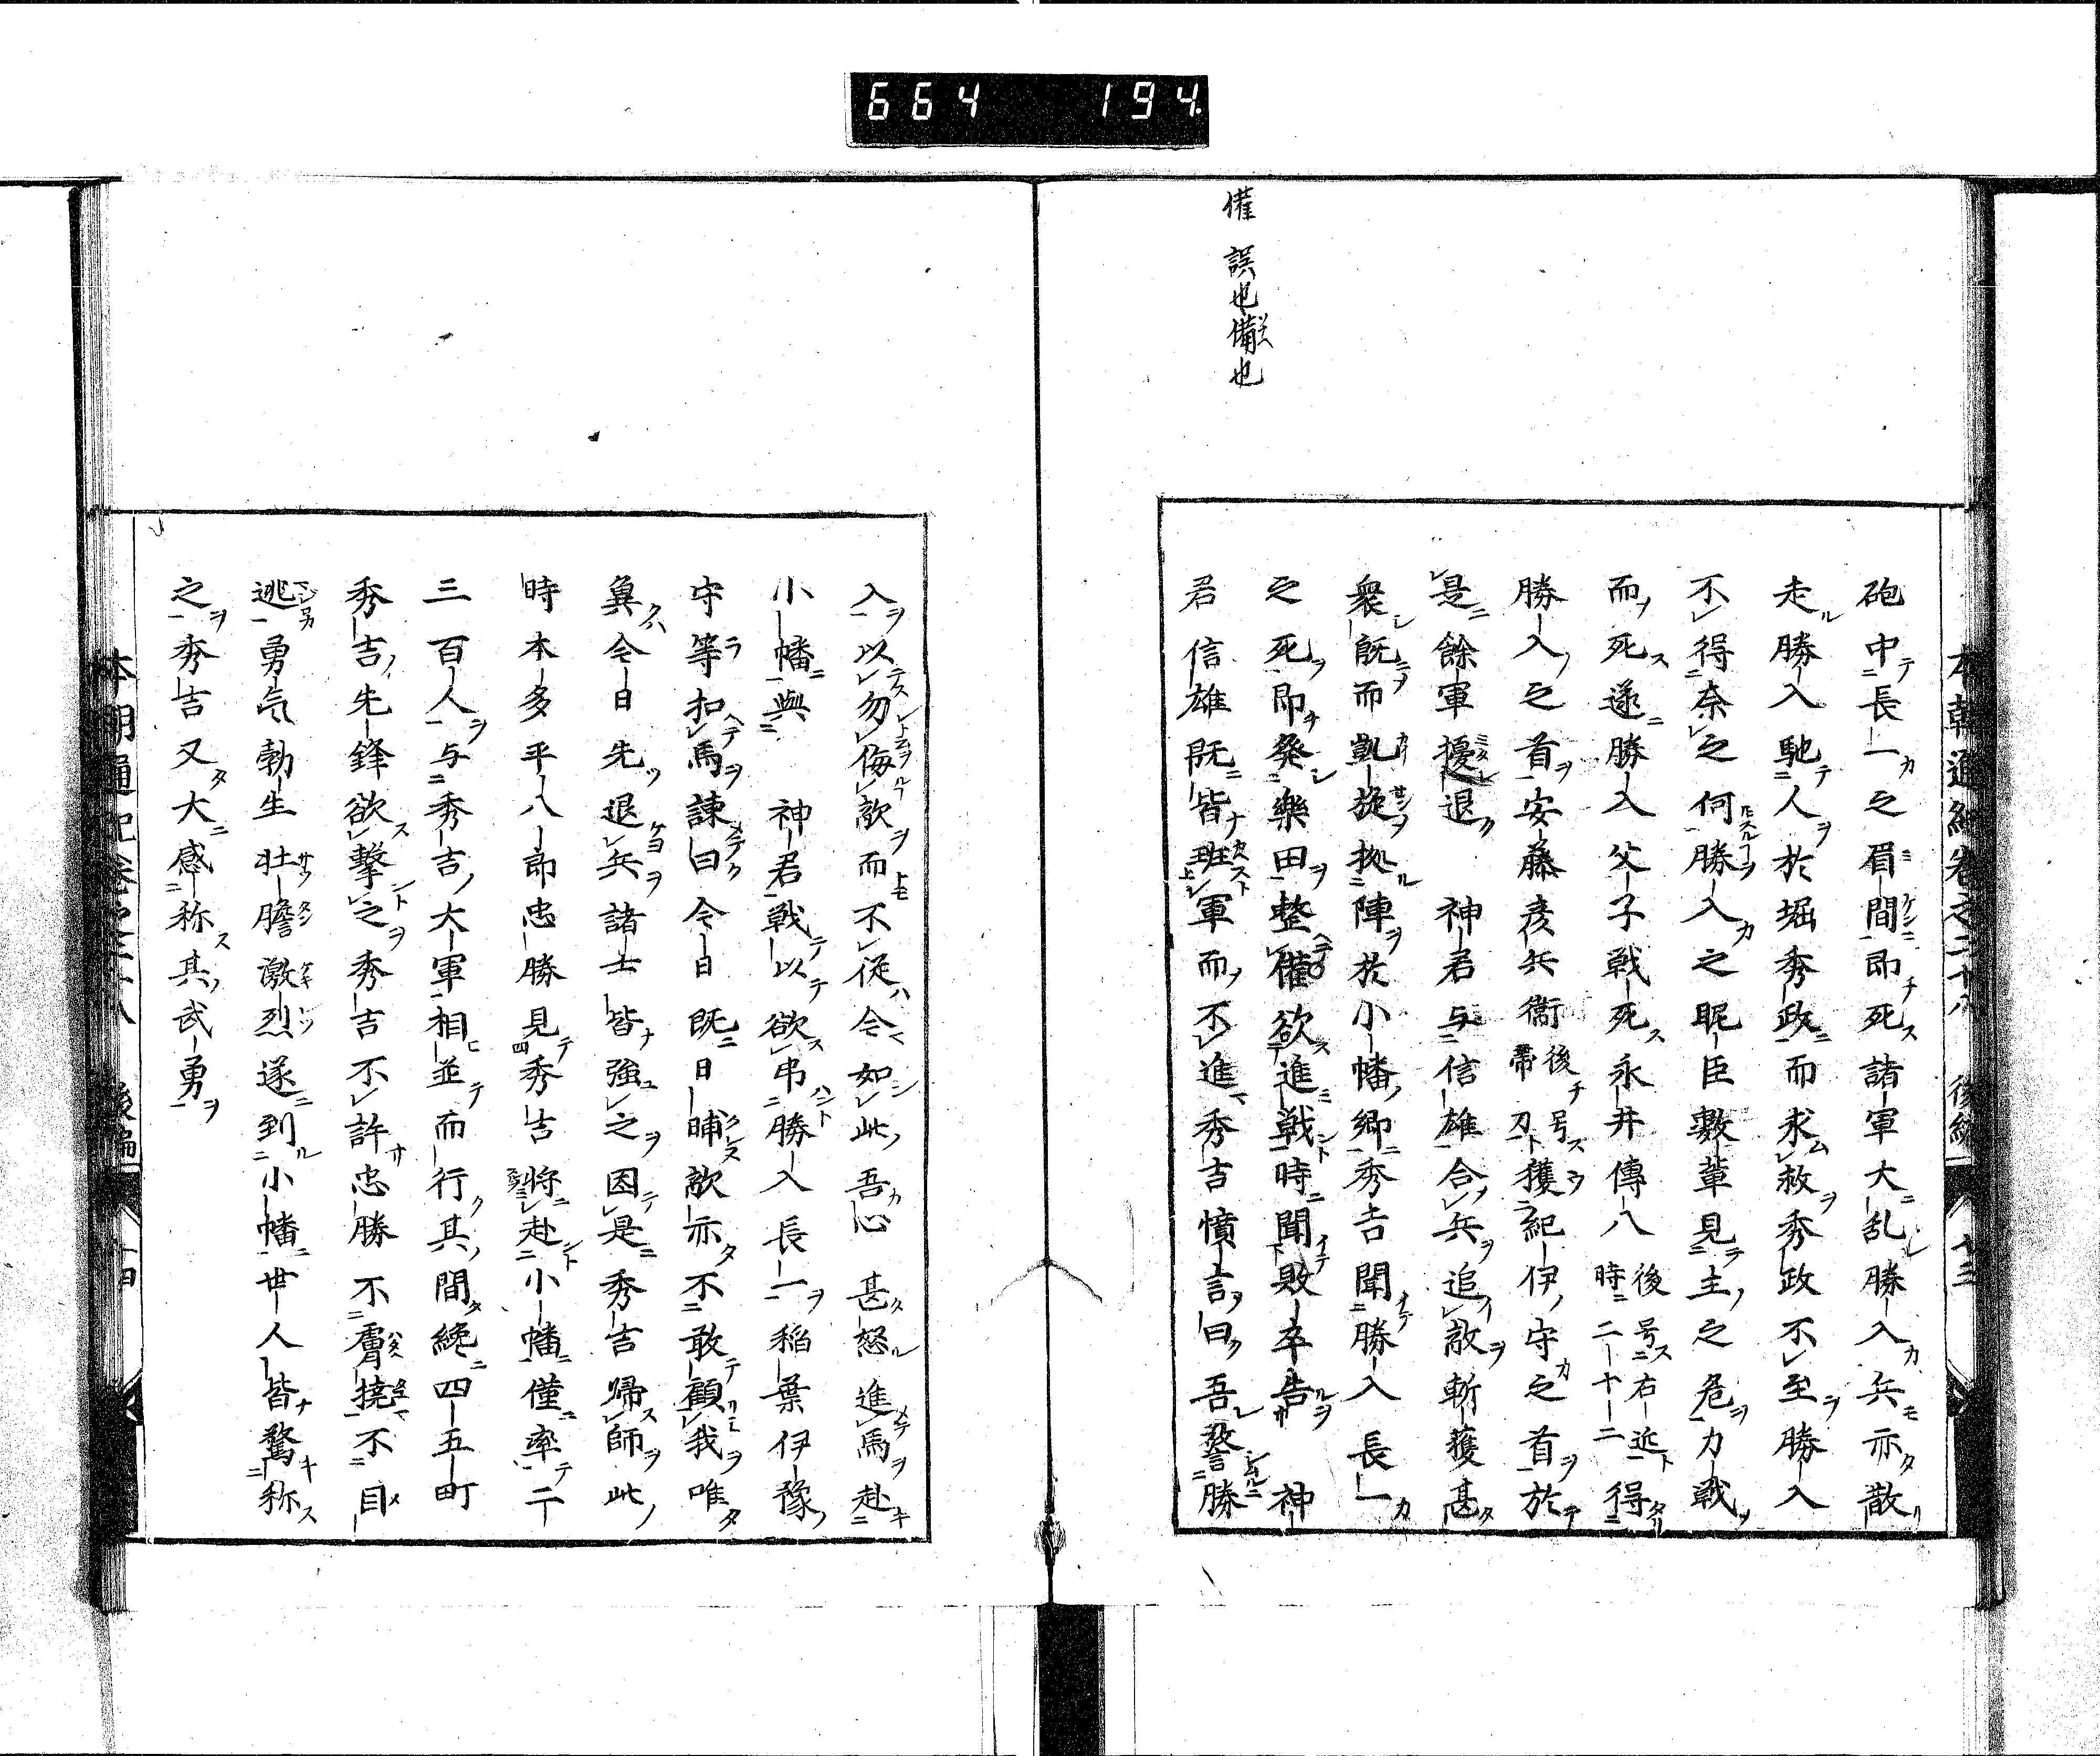 664 194
催 誤也備也
本朝通紀卷之二十八 後編 十三
砲中長一之眉間即死諸軍大乱勝入兵亦散
走勝入馳人於堀秀政而求救秀政不至勝入
不得奈之何勝入之眤臣數輩見主之危力戦
而死遂勝入父子戦死永井傳八後号右近時二十二得
勝入之首安藤彦兵衞後号帯刀獲紀伊守之首於
是餘軍擾退 神君与信雄合兵追敵斬獲甚
衆既而凱旋拠陣於小幡郷秀吉聞勝入長一
之死即發樂田整催欲進戦時聞敗卒告 神
君信雄既皆班軍而不進秀吉憤言曰吾誓勝
入以勿侮敵而不従令如此吾心甚怒進馬赴
小幡與 神君戦以欲弔勝入長一稲葉伊豫
守等扣馬諫曰今日既日晡敵亦不敢顧我唯
冀今日先退兵諸士皆強之因是秀吉歸師此
時本多平八郎忠勝見秀吉將赴小幡僅率二
三百人与秀吉大軍相並而行其間纔四五町
秀吉先鋒欲撃之秀吉不許忠勝不膚撓不目
逃勇气勃生壮膽激烈遂到小幡世人皆驚称
之秀吉又大感称其武勇
本朝通紀卷之二十八 後編 十四